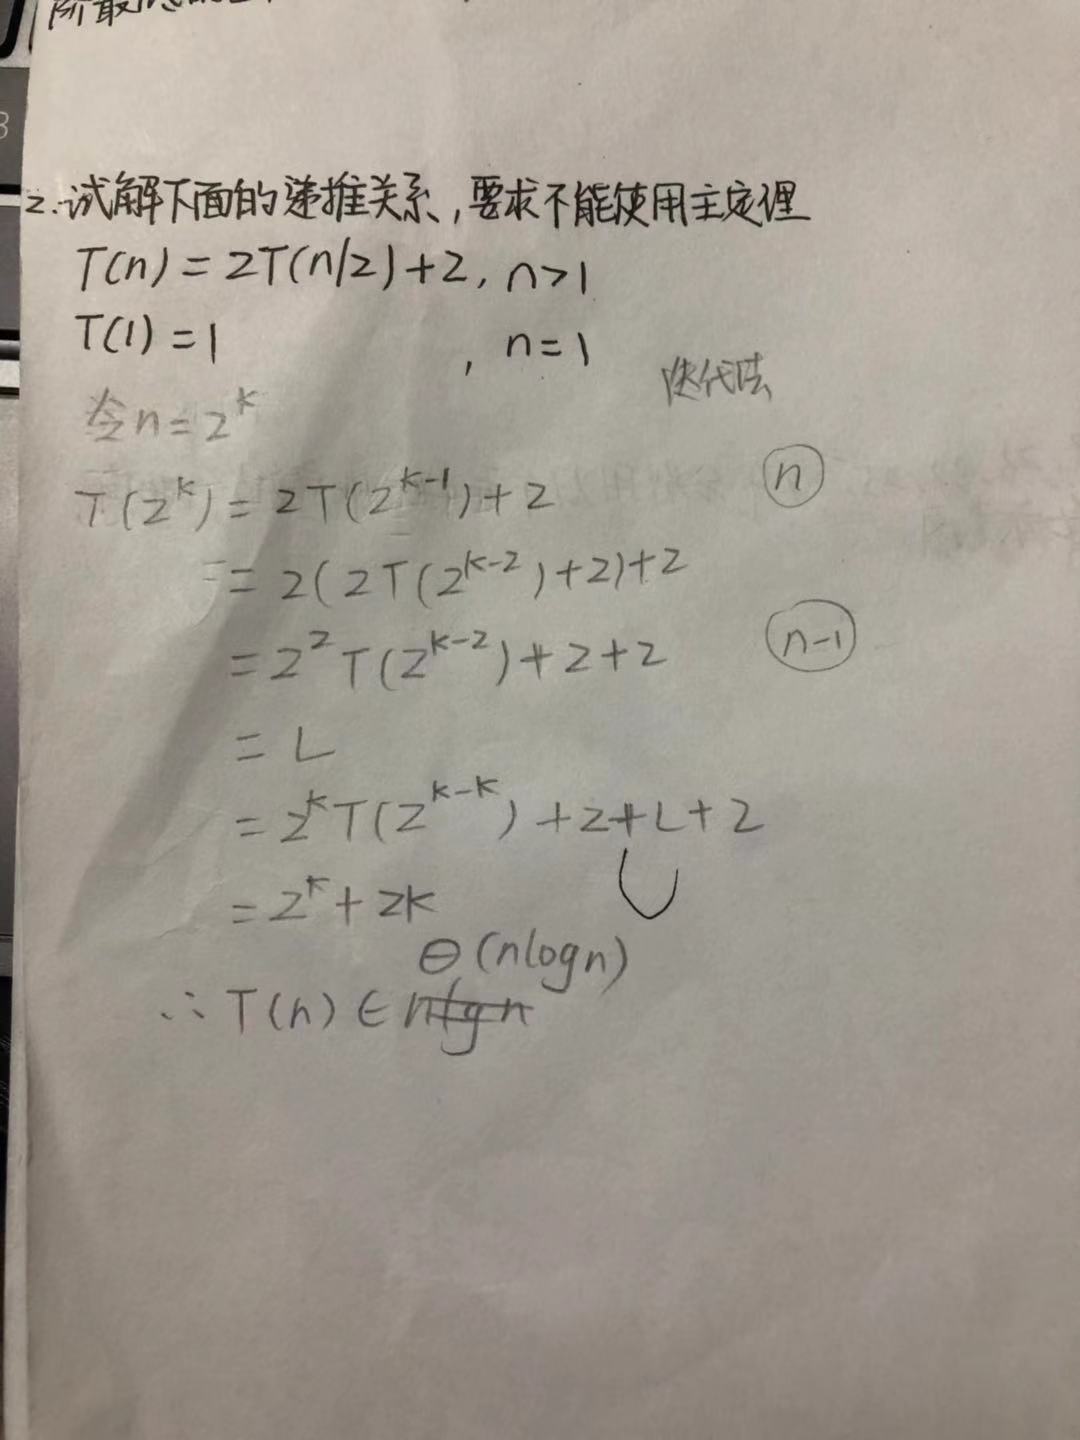 2.试解下面的递推关系,要求不能使用主定理
T(n)=2T(n/2)+2, n>1
T(1)=1 , n=1
迭代法
令n=2^k
T(2^k)=2T(2^{k-1})+2 ⓝ
=2(2T(2^{k-2})+2)+2
=2^2T(2^{k-2})+2+2 (n-1)
=L
=2^kT(2^{k-k})+2+L+2
=2^k+2k
Θ(nlogn)
∴T(n)∈nlgn